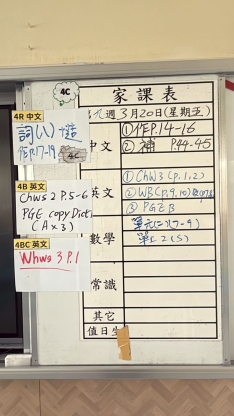 4C
家課表
週 3月20日(星期五)
中文
①作P.14-16
② 補 P.44-45
英文
① Chw3 (P.1,2)
② WB(P.9,10)
③ PGE B
數學
單元(7-9)
常識
其它
值日生
4R 中文
詞(八)
作P.17-19
4C
4B 英文
Chws 2 P.5-6
PGE copy Dict
(A×3)
4BC 英文
Whws 3 P.1